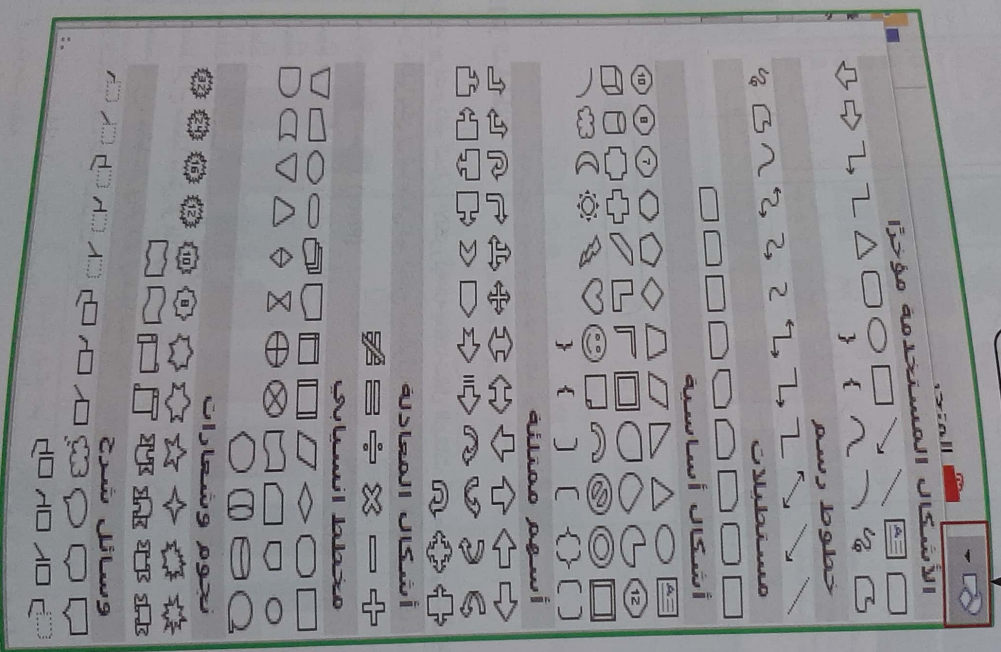 المتجر
الأشكال المستخدمة مؤخرًا
A
خطوط رسم
مستطيلات
أشكال أساسية
A
12
10 8 7
أسهم ممتلئة
أشكال المعادلة
مخطط انسيابي
نجوم وشعارات
8 10 12 16 24 32
وسائل شرح